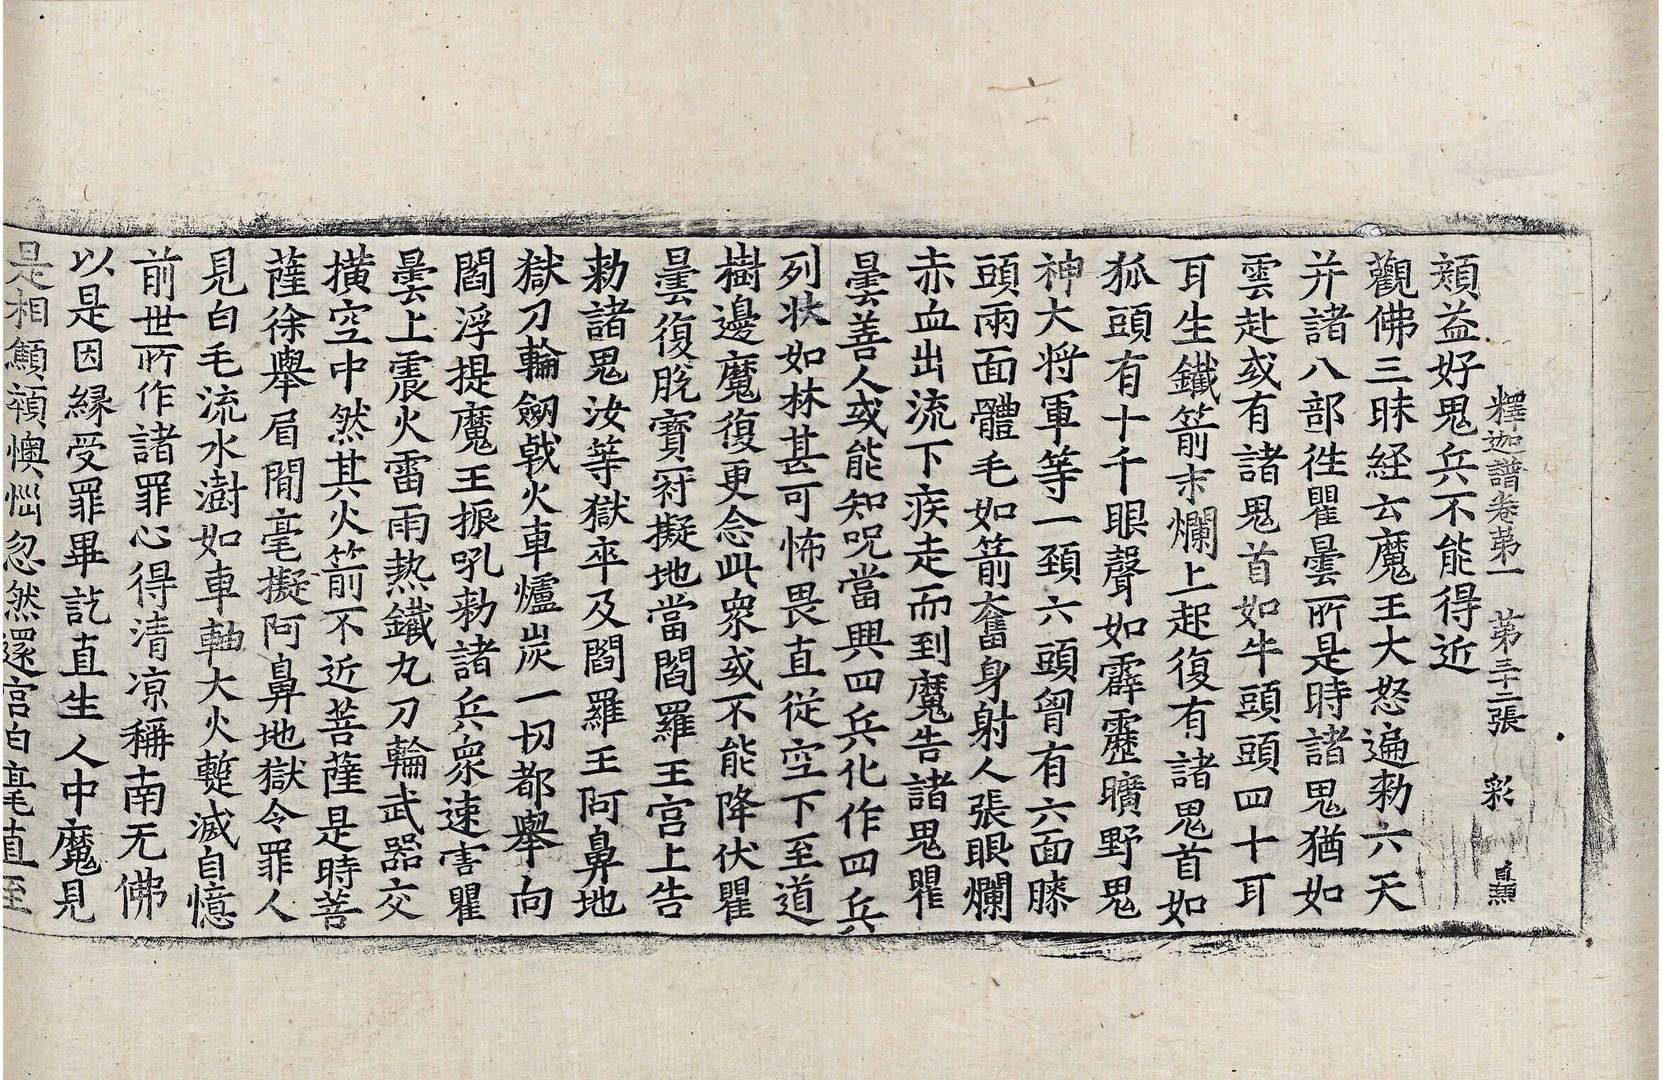 釋迦譜卷第一　第三十二張　彩　
頮益好鬼兵不能得近
觀佛三昧経云魔王大怒遍勑六天
并諸八部徃瞿曇所是時諸鬼猶如
雲赴或有諸鬼首如牛頭頭四十耳
耳生鐵箭末爛上起復有諸鬼首如
狐頭有十千眼聲如霹靂曠野鬼
神大将軍等一頚六頭胷有六面膝
頭兩面體毛如箭奮身射人張眼爛
赤血出流下疾走而到魔告諸鬼瞿
曇善人或能知呪當興四兵化作四兵
列状如林甚可怖畏直従空下至道
樹邊魔復更念此衆或不能降伏瞿
曇復脫寶冠擬地當閻羅王宮上告
勑諸鬼汝等獄卒及閻羅王阿鼻地
獄刀輪劒戟火車爐炭一切都舉向
閻浮提魔王振吼勑諸兵衆速害瞿
曇上震火雷雨熱鐵丸刀輪武器交
撗空中然其火箭不近菩薩是時菩
薩徐舉眉間毫擬阿鼻地獄令罪人
見白毛流水澍如車軸大火蹔滅自憶
前世所作諸罪心得清凉稱南无佛
以是因縁受罪畢訖直生人中魔見
是相顦顇懊惱忽然還宮白毫直至